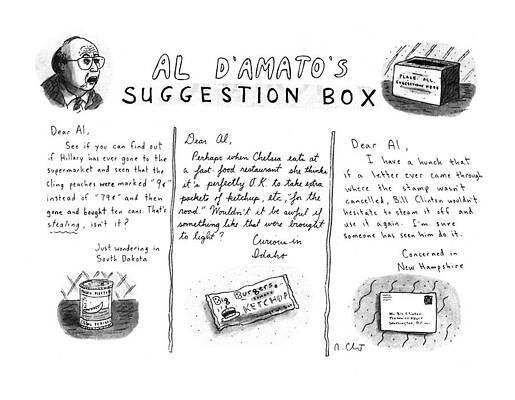 AL D'AMATO'S
SUGGESTION BOX
PLACE ALL
SUGGESTIONS HERE
Dear Al,
See if you can find out
if Hillary has ever gone to the
supermarket and seen that the
cling peaches were marked "9¢"
instead of "79¢" and then
gone and bought ten cans. That's
stealing, isn't it?
Just wondering in
South Dakota
Dear Al,
Perhaps when Chelsea eats at
a fast-food restaurant she thinks
it's perfectly O.K. to take extra
packets of ketchup, etc., "for the
road." Wouldn't it be awful if
something like that were brought
to light?
Curious in
Idaho
Big Burgers
KETCHUP
Dear Al,
I have a hunch that
if a letter ever came through
where the stamp wasn't
cancelled, Bill Clinton wouldn't
hesitate to steam it off and
use it again. I'm sure
someone has seen him do it.
Concerned in
New Hampshire
Mr. Bill Clinton
The White House
Washington, D.C.
R. Chast